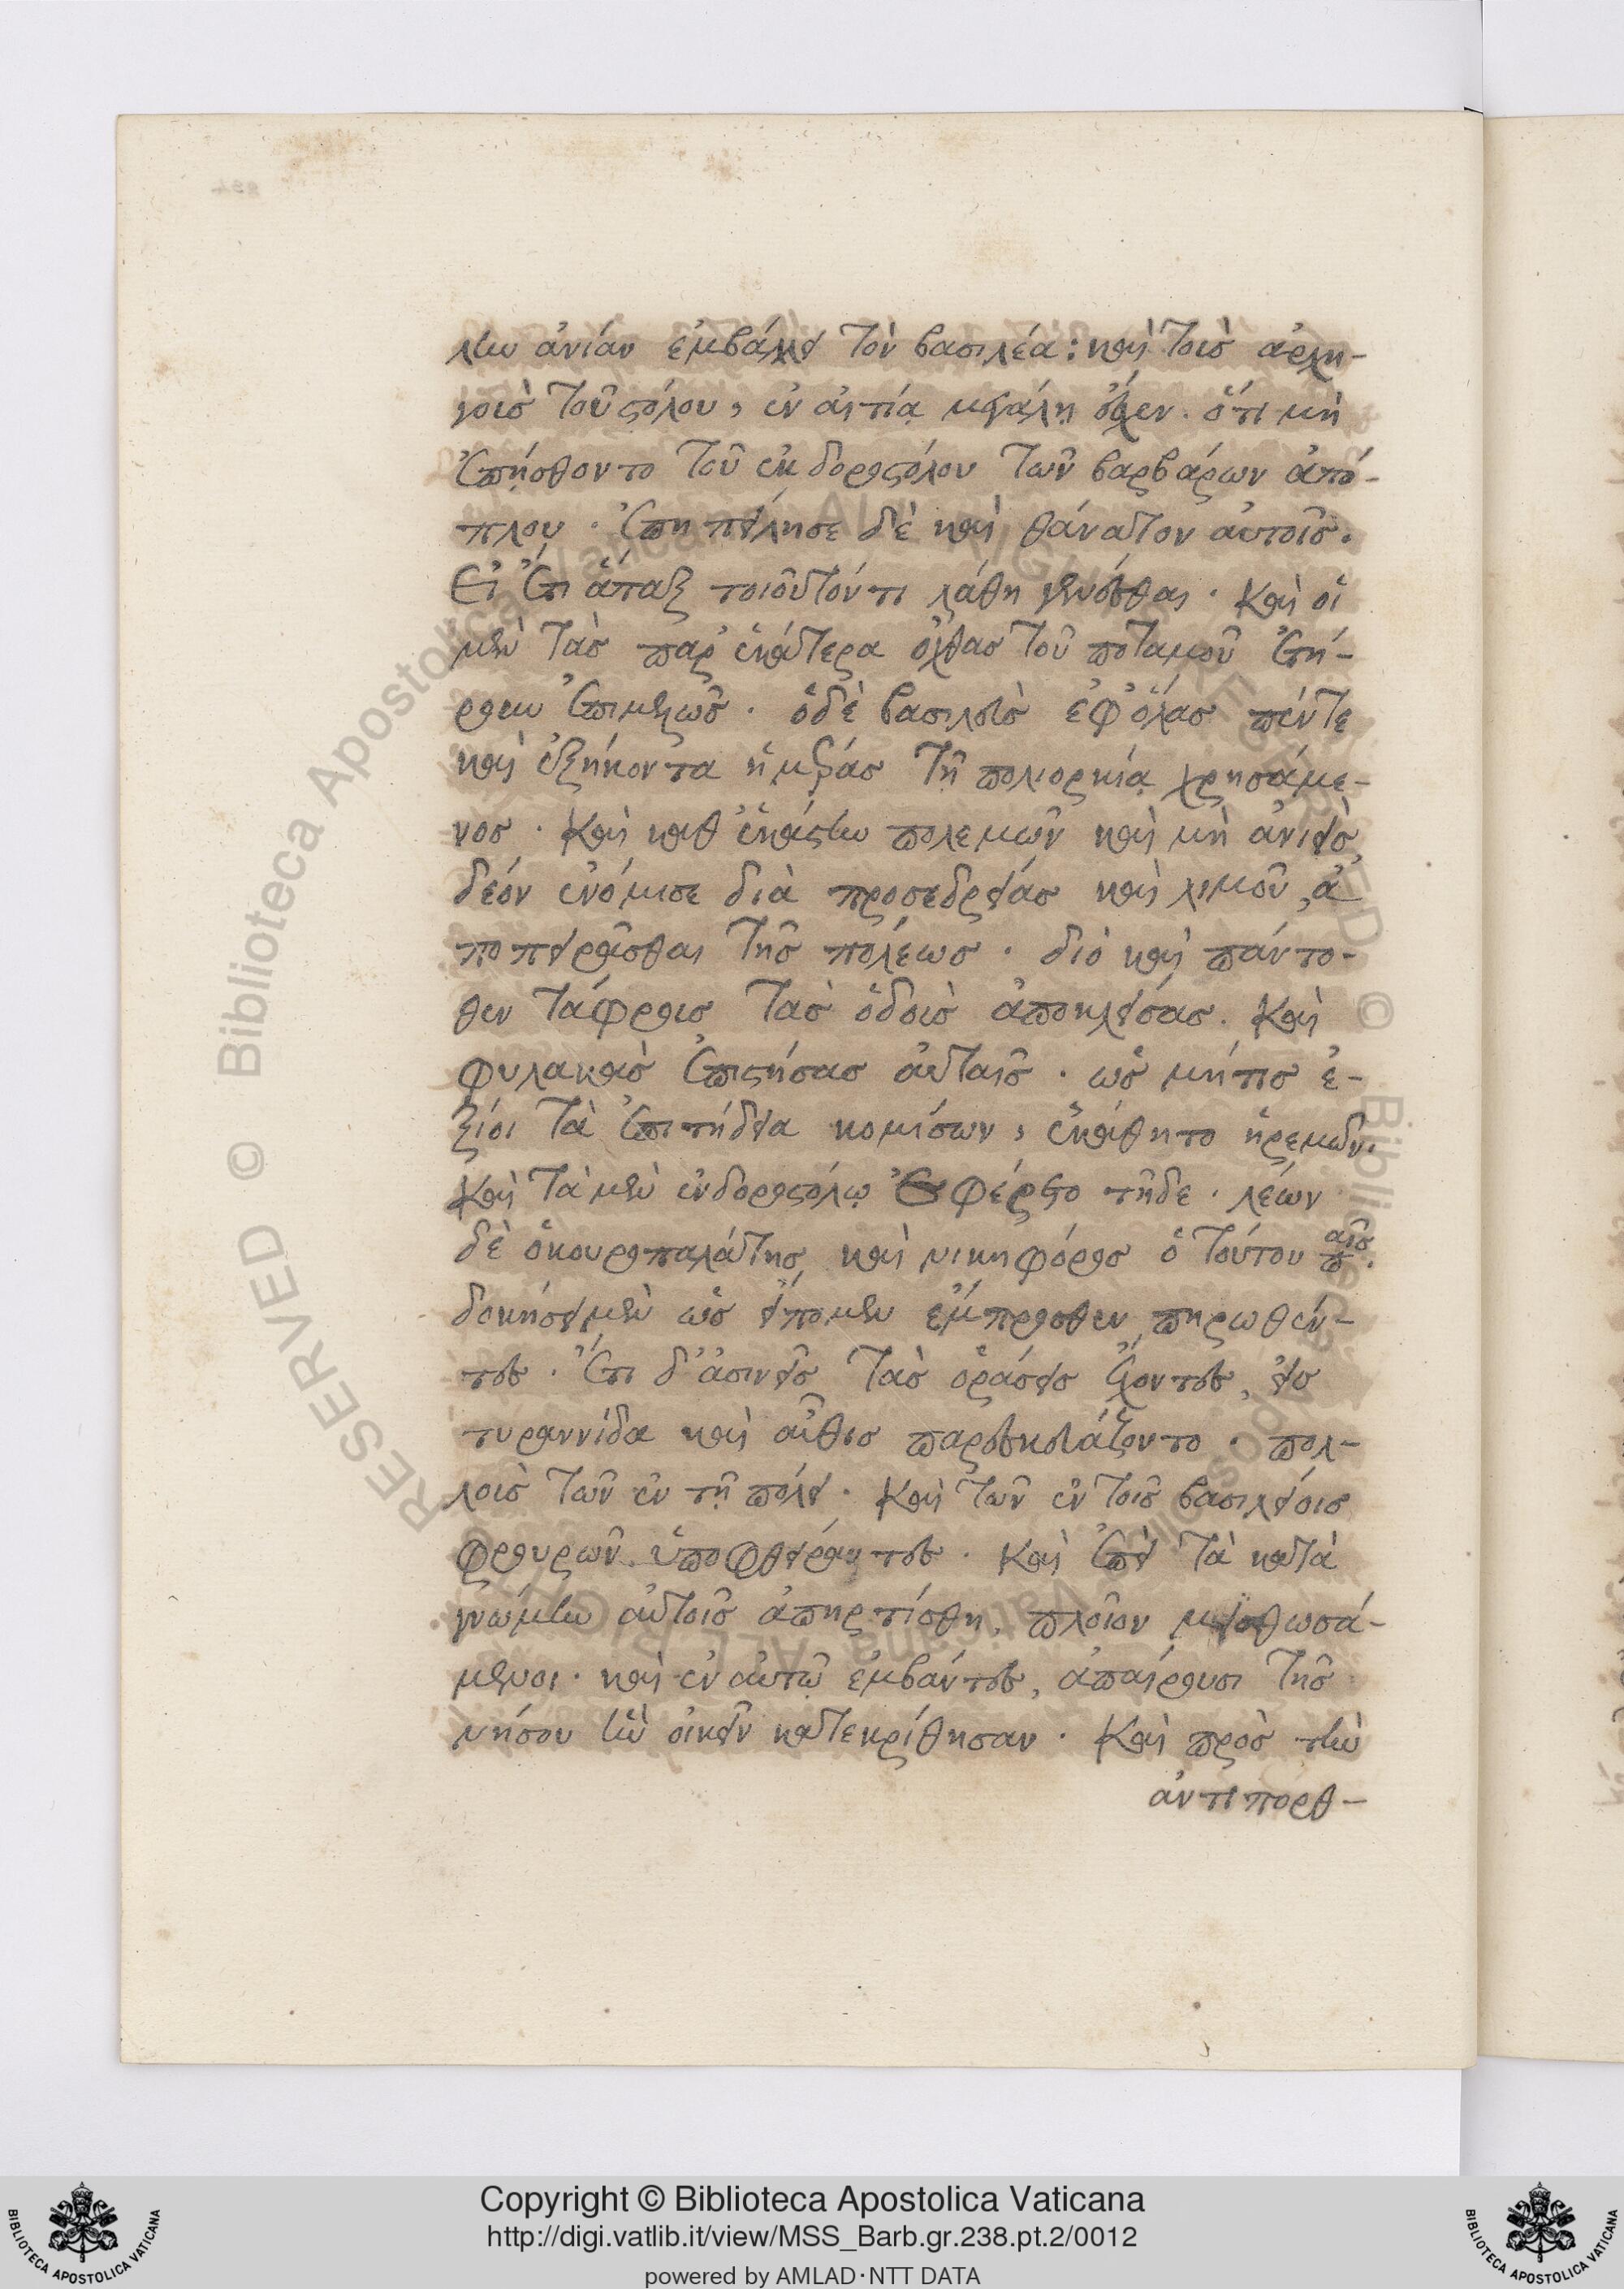 λὴν ἀνίαν ἐμβάλει τὸν βασιλέα: καὶ τοὶς ἀρχη-
γοις τοῦ στόλου, ἐν αἰτίᾳ μεγάλῃ εἶχεν. ὅτι μὴ
ἐπῄσθοντο τοῦ ἐκ δοροστόλου τῶν βαρβάρων ἀπό-
πλου. ἐπηπείλησε δὲ καὶ θάνατον αὐτοῖς.
Εἰ ἔτι ἅπαξ τοιοῦτόν τι λάθη γενέσθαι. Καὶ οἱ
μὲν τὰς παρ' ἑκάτερα ὄχθας τοῦ ποταμοῦ ἐτή-
ρουν ἐπιμελῶς. ὁ δὲ βασιλεὺς ἐφ' ὅλας πέντε
καὶ ἑξήκοντα ἡμέρας τῇ πολιορκίᾳ χρησάμε-
νος. Καὶ καθ' ἑκάστην πολεμῶν καὶ μὴ ἀνιεὶς
δέον ἐνόμισε διὰ προσεδρείας καὶ λιμοῦ, ἀ
ποπειρᾶσθαι τῆς πόλεως. διὸ καὶ πάντο-
θεν τάφροις τὰς ὁδοὺς ἀποκλείσας. Καὶ
φυλακὰς ἐπιστήσας αὐταῖς. ὡς μήτις ἐ-
ξίοι τὰ ἐπιτήδεια κομίσων, ἐκάθητο ἠρεμῶν.
Καὶ τὰ μὲν ἐν δοροστόλῳ ἐφέρετο τῆδε. λέων
δὲ ὁ κουροπαλάτης καὶ νικηφόρος ὁ τούτου παῖς.
δοκήσει μὲν ὡς εἴπομεν ἔμπροσθεν πηρωθέν-
τες. ἔτι δ' ἀσινεῖς τὰς ὁράσεις ἔχοντες, εἰς
τυραννίδα καὶ αὖθις παρεσκευάζοντο. πολ-
λοὺς τῶν ἐν τῇ πόλει. Καὶ τῶν ἐν τοῖς βασιλείοις
φρουρῶν ὑποφθείραντες. Καὶ ἐπεὶ τὰ κατὰ
γνώμην αὐτοῖς ἀπηρτίσθη, πλοῖον μισθωσά-
μενοι. καὶ ἐν αὐτῷ ἐμβάντες, ἀπαίρουσι τῆς
νήσου ἣν οἰκεῖν κατεκρίθησαν. Καὶ πρὸς τὴν
ἀντιπορθ-
Copyright © Biblioteca Apostolica Vaticana
http://digi.vatlib.it/view/MSS_Barb.gr.238.pt.2/0012
powered by AMLAD·NTT DATA